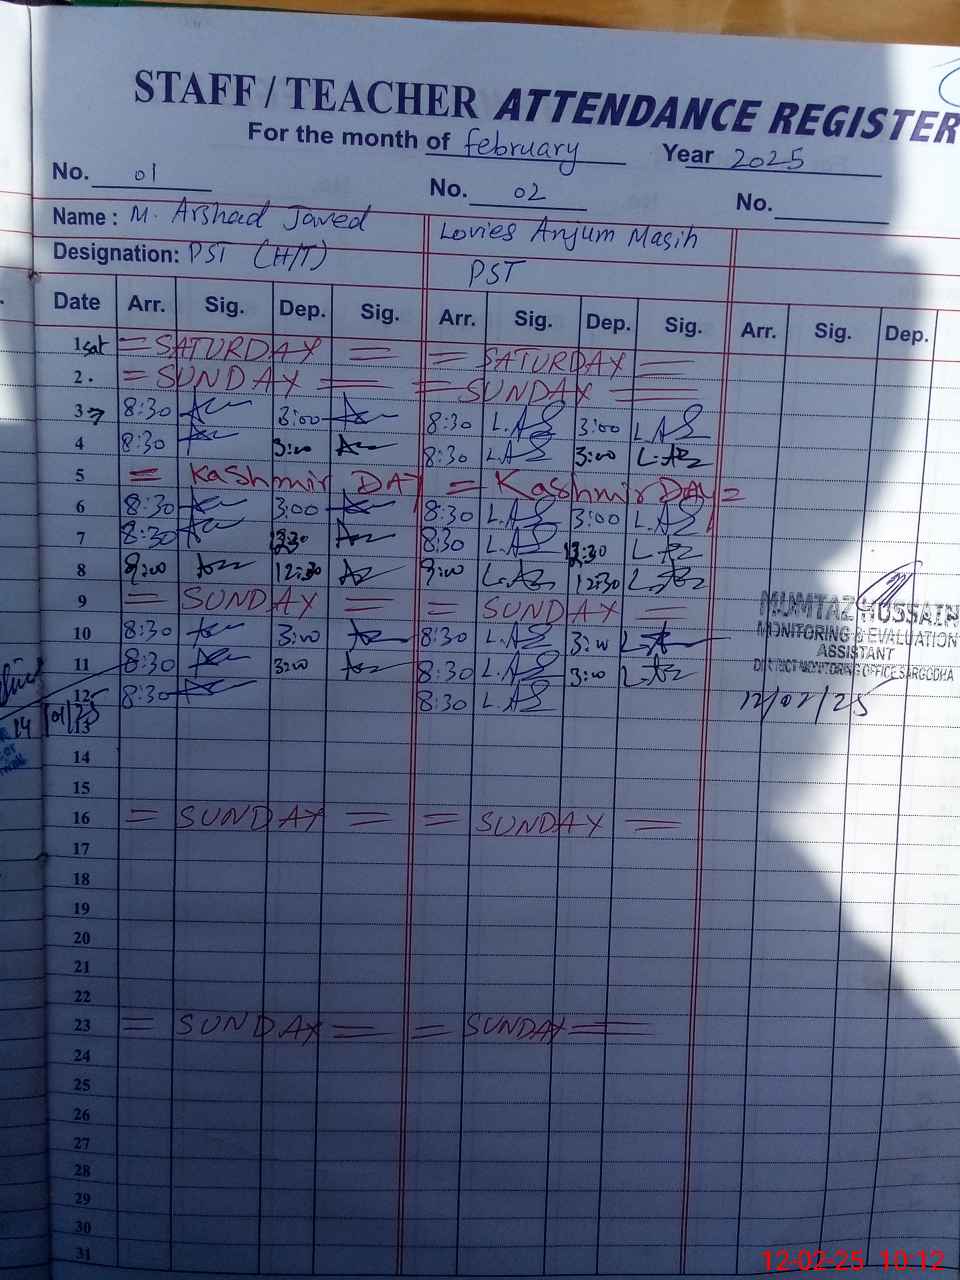 STAFF / TEACHER ATTENDANCE REGISTER
For the month of february Year 2025
No. 01 No. 02 No.
Name : M. Arshad Javed Lovies Anjum Masih
Designation: PST (H/T) PST
Date Arr. Sig. Dep. Sig. Arr. Sig. Dep. Sig. Arr. Sig. Dep.
1 sat = SATURDAY = = SATURDAY =
2. = SUNDAY = = SUNDAY =
3 8:30 3:00 8:30 L.AS 3:00 L.AS
4 8:30 3:00 8:30 L.AS 3:00
5 = Kashmir DAY = Kashmir DAY =
6 8:30 3:00 8:30 L.AS 3:00 L.AS
7 8:30 8:30 L.AS
8 9:00 12:30 9:00 12:30
9 = SUNDAY = = SUNDAY =
10 8:30 3:00 8:30 L.AS 3:00
11 8:30 3:00 8:30 L.AS 3:00
12 8:30 8:30 L.AS
MUMTAZ HUSSAIN
MONITORING & EVALUATION
ASSISTANT
DISTRICT MONITORING OFFICE SARGODHA
12/02/25
13
14
15
16 = SUNDAY = = SUNDAY =
17
18
19
20
21
22
23 = SUNDAY = = SUNDAY =
24
25
26
27
28
29
30
31
12-02-25 10:12